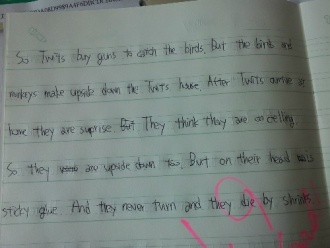 So Twits buy guns to catch the birds. But the birds and
monkeys make upside down the Twits house. After Twits arrive at
home they are suprise. But They think they are on ceiling.
So they are upside down too. But on their head was
sticky glue. And they never turn and they die by shrinks.
19